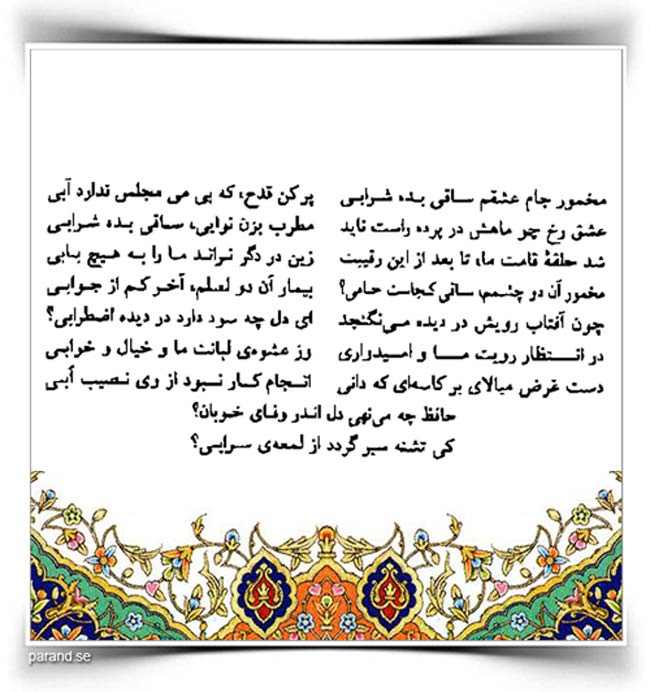 مخمور جام عشقم ساقی بده شرابی پر کن قدح، که بی می مجلس ندارد آبی
عشق رخ چو ماهش در پرده راست ناید مطرب بزن نوایی، ساقی بده شرابی
شد حلقهٔ قامت ما، تا بعد از این رقیبت زین در دگر نراند ما را به هیچ بابی
مخمور آن دو چشمم، ساقی کجاست جامی؟ بیمار آن دو لعلم، آخر کم از جوابی
چون آفتاب رویش در دیده می‌نگنجد ای دل چه سود دارد در دیده اضطرابی؟
در انتظار رویت ما و امیدواری وز عشوه‌ی لبانت ما و خیال و خوابی
دست غرض میالای بر کاسه‌ای که دانی انجام کار نبود از وی نصیب آبی
حافظ چه می‌نهی دل اندر وفای خوبان؟
کی تشنه سیر گردد از لمعه‌ی سرابی؟
parand.se